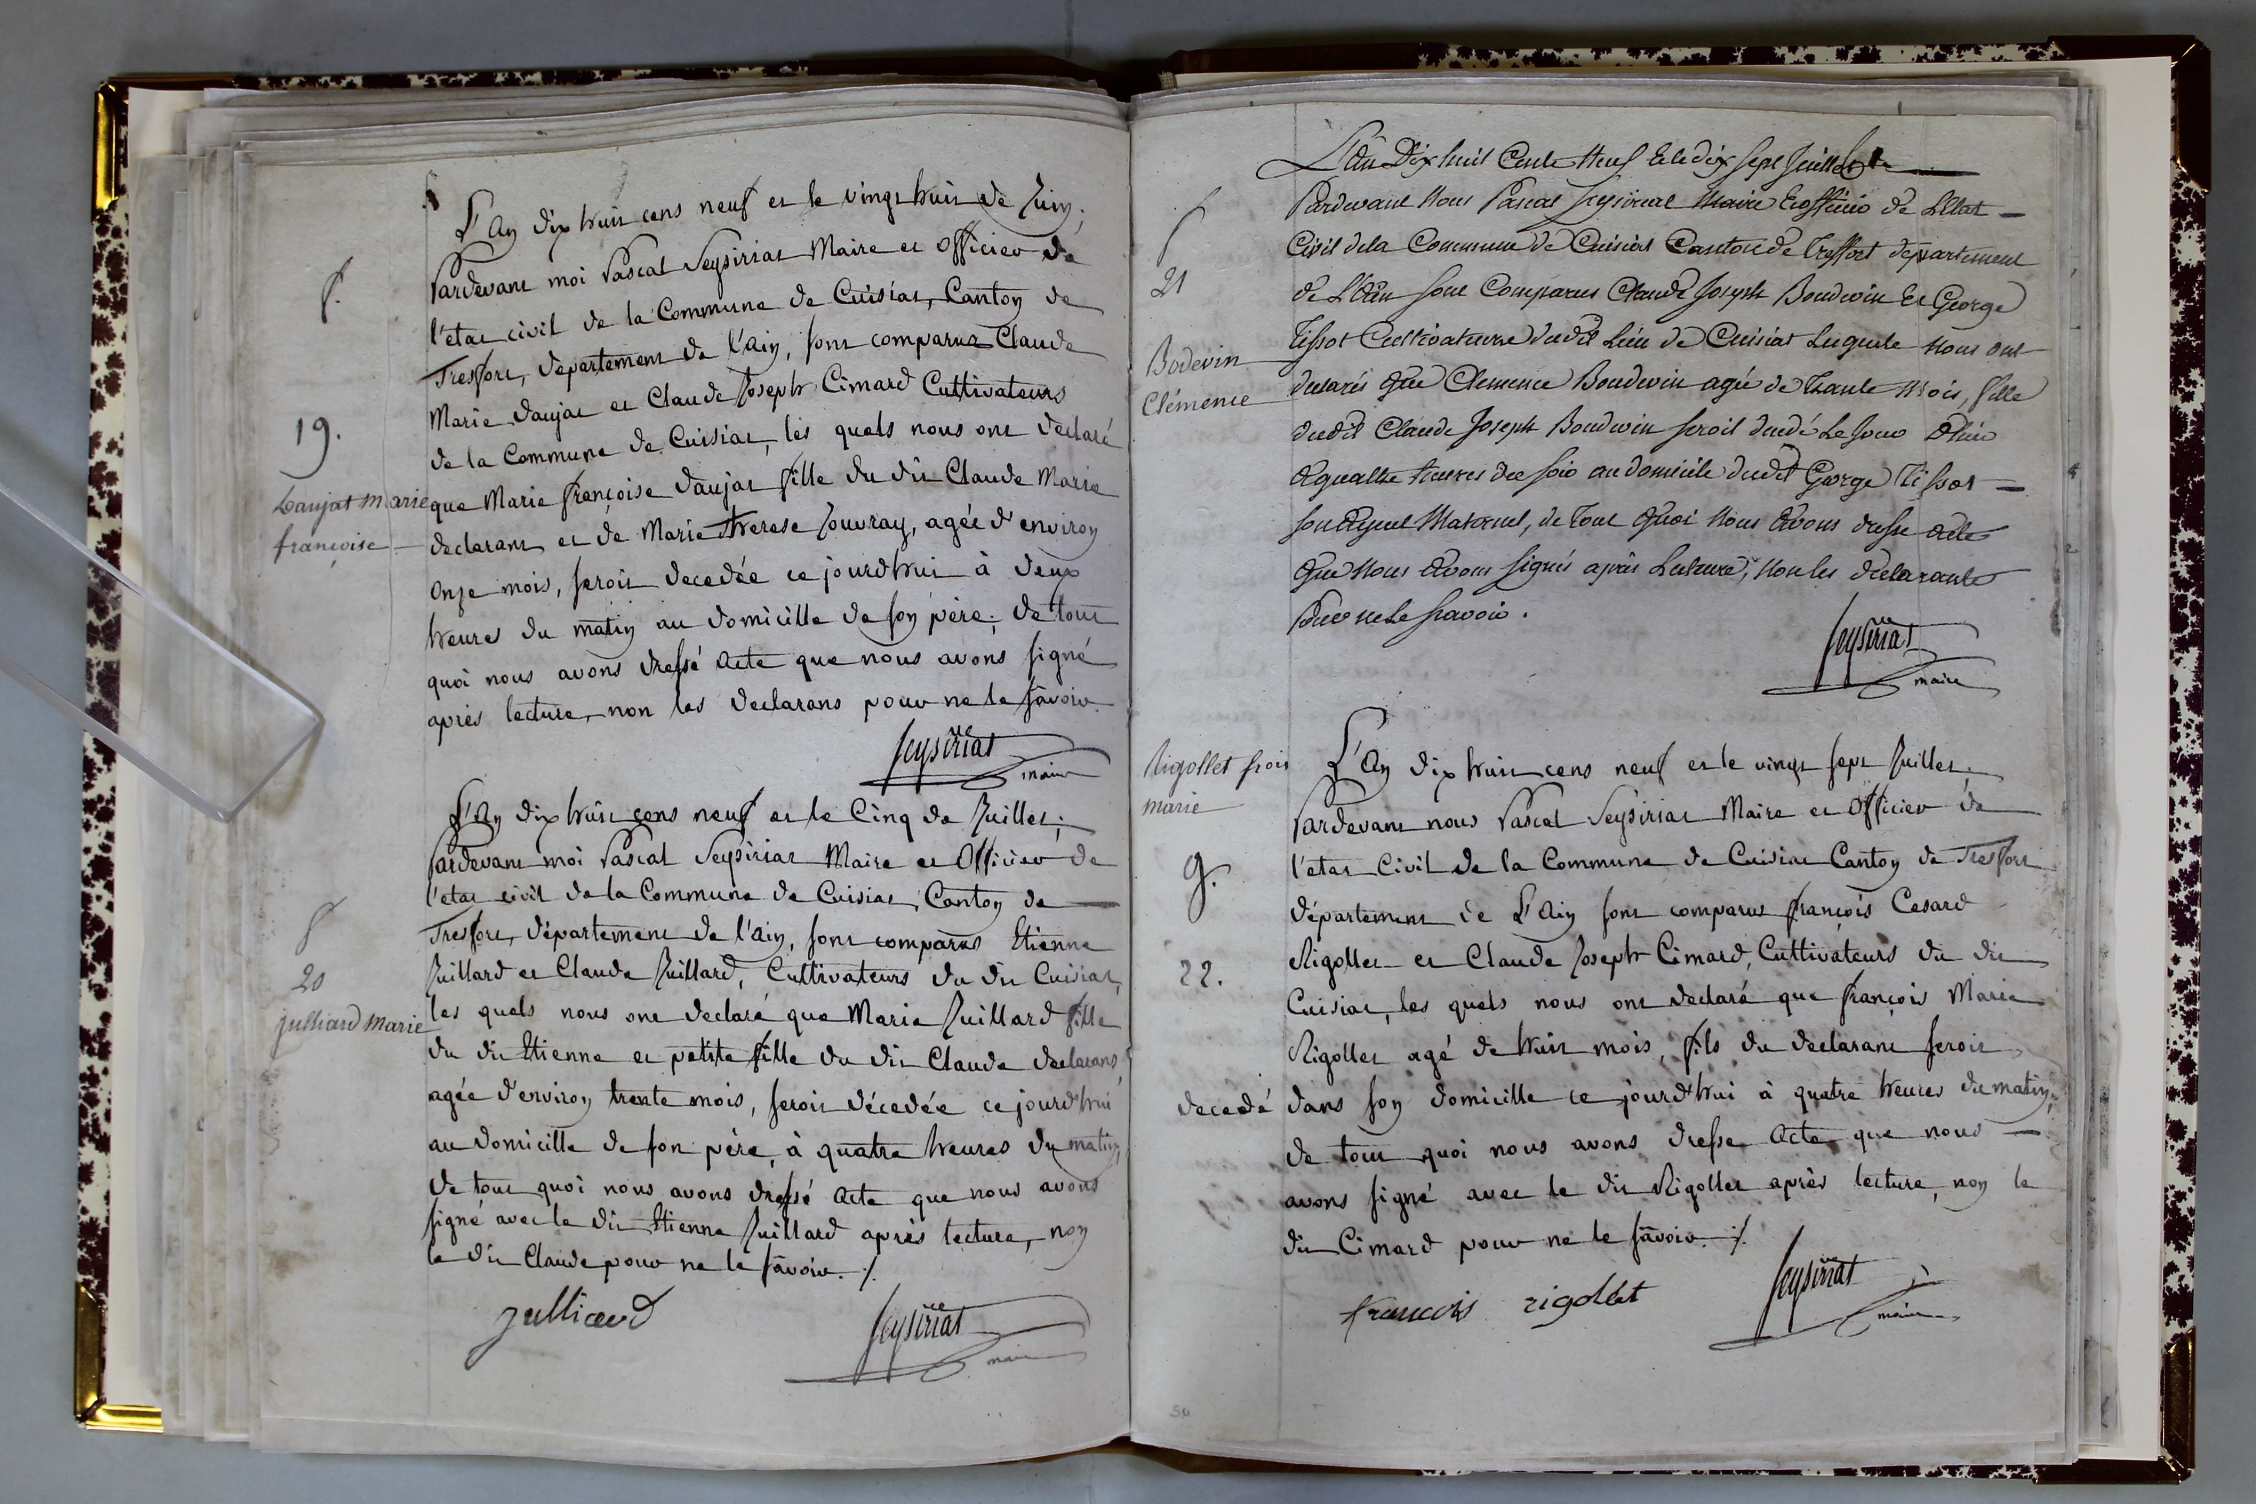 L'An dix huit cens neuf et le vingt huit de Juin,
Pardevant moi Pascal Seysiriat Maire et officier de
l'etat civil de la Commune de Cuisiat, Canton de
Tresfort, département de l'ain, sont comparus Claude
Marie Daujat et Claude Joseph Cimard Cultivateurs
de la Commune de Cuisiat, les quels nous ont declaré
que Marie françoise Daujat fille du dit Claude Marie
declarant et de Marie therese Jouvray, agée d'environ
onze mois, seroit decedée ce jourd'hui à deux
heures du matin au domicille de son père; de tout
quoi nous avons dressé acte que nous avons signé
après lecture, non les declarans pour ne le sçavoir.
f.
19.
Daujat marie
françoise
Seysiriat
maire
L'An dix huit cens neuf et le Cinq de Juillet;
Pardevant moi Pascal Seysiriat Maire et Officier de
l'etat civil de la Commune de Cuisiat, Canton de
Tresfort, département de l'ain, sont comparus Etienne
Juillard et Claude Juillard, Cultivateurs du dit Cuisiat,
les quels nous ont declaré que Marie Juillard fille
du dit Etienne et petite fille du dit Claude declarans
agée d'environ trente mois, seroit décedée ce jourd'hui
au domicille de son père, à quatre heures du matin,
de tout quoi nous avons dressé acte que nous avons
signé avec le dit Etienne Juillard après lecture, non
le dit Claude pour ne le sçavoir ./.
f
20
julliard Marie
Julliard
Seysiriat
maire
L'An Dix huit Cent Neuf Et le dix sept Juillet
Pardevant Nous Pascal Seysiriat Maire Et officié de L'Etat
Civil dela Commune de Cuisiat Canton de Treffort departement
de L'Ain sont Comparus Claude Joseph Boudevin Et George
Tissot Cultivateurs dudit Lieu de Cuisiat Lequels Nous ont
declarés que Clemence Boudevin agée de Trante Mois, fille
dudit Claude Joseph Boudevin seroit decedé Le Jour D'hier
a quatre heures du soir au domicile dudit George Tissot
son ayeul Maternel, de Tout quoi Nous avons dressé acte
que Nous avons signés après Lecture, Non les declarants
pour ne le sçavoir.
f
21
Bodevin
Clémence
Seysiriat
maire
L'An dix huit cens neuf et le vingt sept Juillet,
Pardevant nous Pascal Seysiriat Maire et Officier de
l'etat Civil de la Commune de Cuisiat Canton de Tresfort
département de L'Ain sont comparus françois Cesard
Rigollet et Claude Joseph Cimard, Cultivateurs du dit
Cuisiat, les quels nous ont declaré que françois Marie
Rigollet agé de huit mois, fils du declarant seroit
decedé dans son domicille ce jourd'hui à quatre heures du matin,
de tout quoi nous avons dressé acte que nous
avons signé avec le dit Rigollet après lecture, non le
dit Cimard pour ne le sçavoir ./.
Rigollet frois
marie
g.
22.
francois rigollet
Seysiriat
maire
50